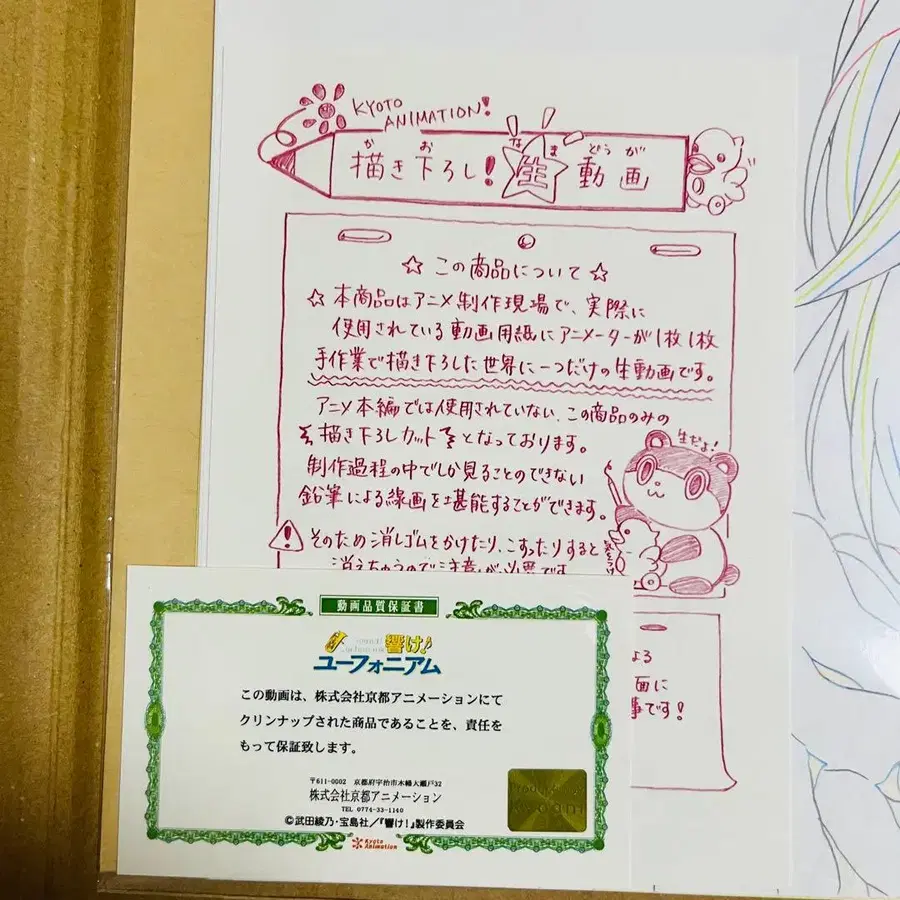 KYOTO
ANIMATION!
か お なま どうが
描き下ろし！生動画
☆この商品について☆
☆本商品はアニメ制作現場で、実際に
使用されている動画用紙にアニメーターが1枚1枚
手作業で描き下ろした世界に一つだけの生動画です。
アニメ本編では使用されていない、この商品のみの
描き下ろしカットとなっております。
制作過程の中でしか見ることのできない
鉛筆による線画を堪能することができます。
生だよ！
そのため消しゴムをかけたり、こすったりすると
消えちゃうので注意が必要です
よる
面に
事です！
動画品質保証書
響け！
ユーフォニアム
この動画は、株式会社京都アニメーションにて
クリンナップされた商品であることを、責任を
もって保証致します。
〒611-0002 京都府宇治市木幡大瀬戸32
株式会社京都アニメーション
TEL 0774-33-1140
©武田綾乃・宝島社／『響け！』製作委員会
Kyoto
Animation